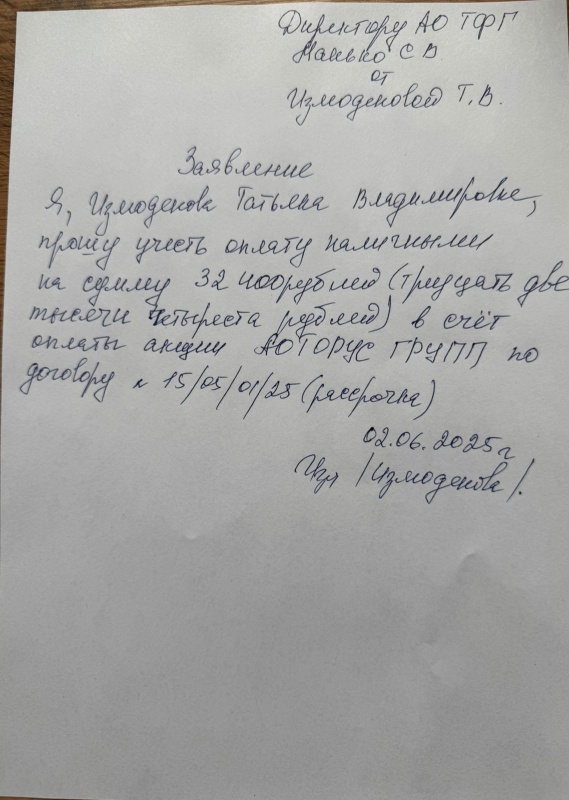 Директору АО ТФГ
Манько С В
от
Измоденовой Т.В.
Заявление
Я, Измоденова Татьяна Владимировне,
прошу учесть оплату наличными
на сумму 32 400 рублей (тридцать две
тысячи четыреста рублей) в счёт
оплаты акции АО ТОРУС ГРУПП по
договору N 15/05/01/25 (рассрочка)
02.06.2025г
/Измоденова/.